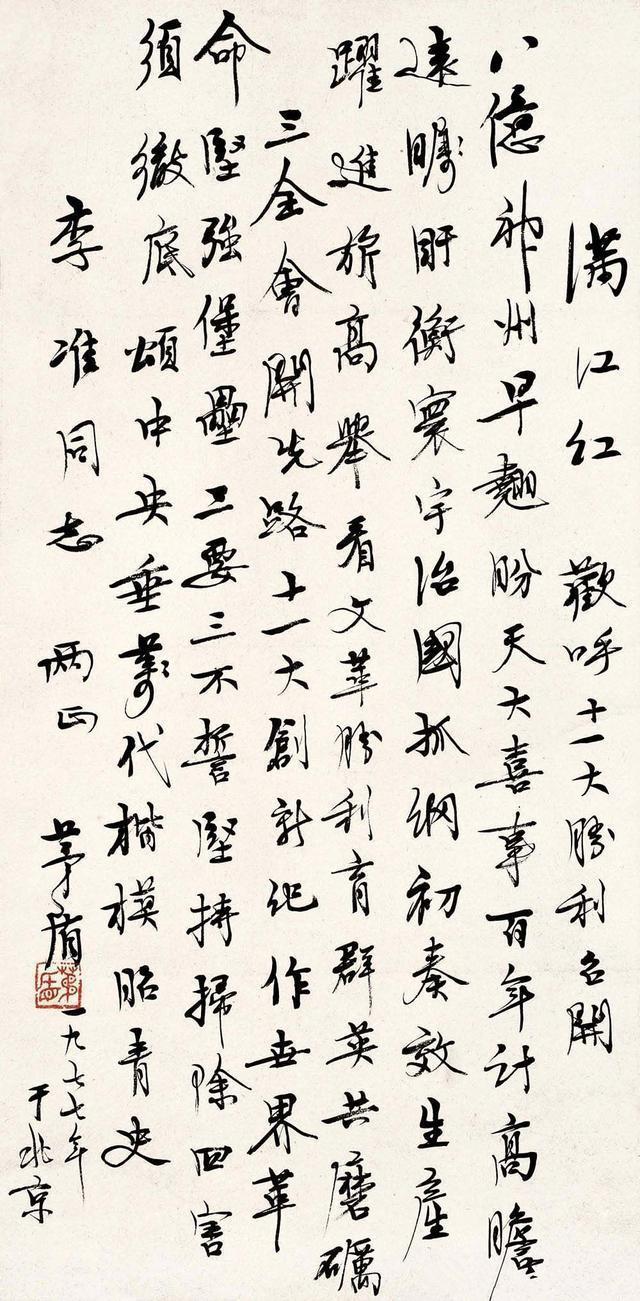 滿江紅 歡呼十一大勝利召開
八億神州早翹盼天大喜事百年計高瞻
遠矚盱衡寰宇治國抓綱初奏效生產
躍進旂高舉看文華勝利育群英共磨礪
三全會開先路十一大創新紀作世界革
命堅強堡壘三要三不誓堅持掃除四害
須徹底頌中央垂萬代楷模昭青史
李准同志 兩正
茅盾
一九七七年
于北京